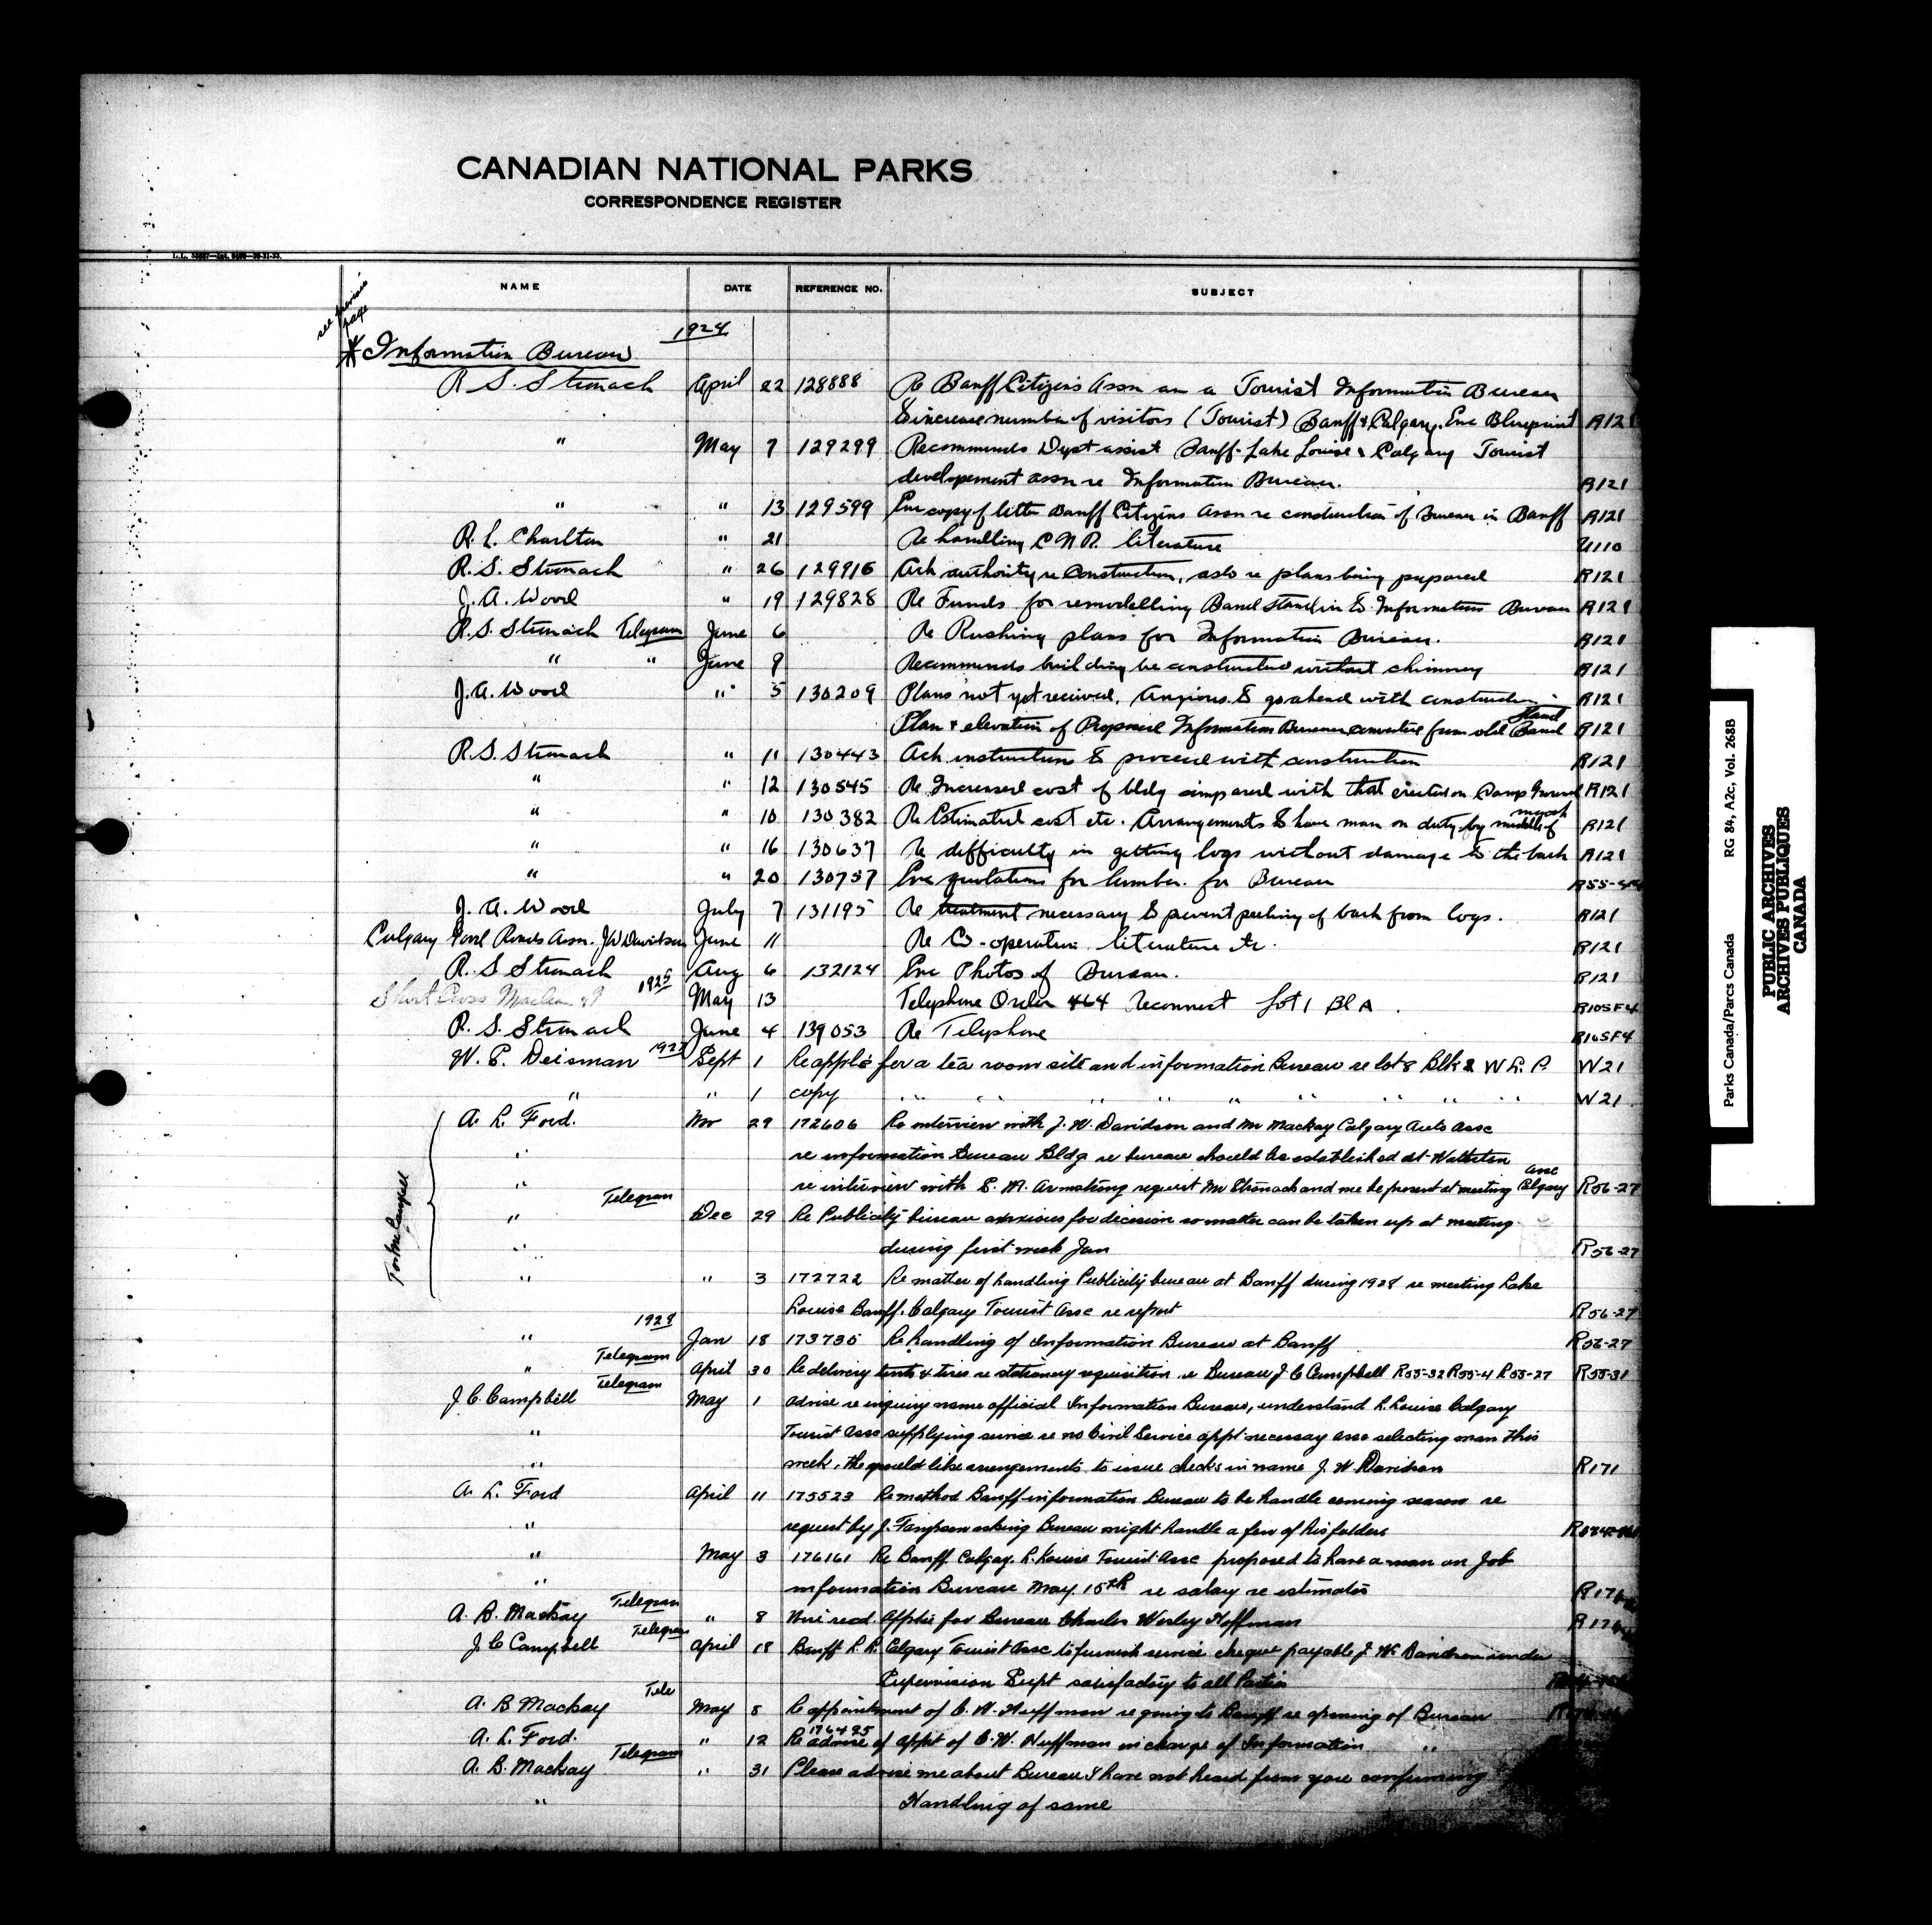 CANADIAN NATIONAL PARKS
CORRESPONDENCE REGISTER
NAME DATE REFERENCE NO. SUBJECT
see previous page
1924
* Information Bureau
R. S. Stronach April 22 128888 Re Banff Citizens Assn on a Tourist Information Bureau
to increase number of visitors (Tourist) Banff & Calgary. Enc Blueprint R121
" May 7 129299 Recommends Dept assist Banff-Lake Louise & Calgary Tourist
developement assn re Information Bureau. R121
" " 13 129599 Enc copy of letter Banff Citizens Assn re construction of Bureau in Banff R121
R. L. Charlton " 21 Re handling C.N.R. literature U110
R. S. Stronach " 26 129916 Ack authority re Construction, asks re plans being prepared R121
J. A. Wood " 19 129828 Re Funds for remodelling Band stand in to Information Bureau R121
R. S. Stronach Telegram June 6 Re Rushing plans for Information Bureau. R121
" " June 9 Recommends building be constructed without chimney R121
J. A. Wood " 5 130209 Plans not yet received. Anxious to go ahead with construction R121
Plan & elevation of Proposed Information Bureau converted from old Band Stand R121
R. S. Stronach " 11 130443 Ack instructions to proceed with construction R121
" " 12 130545 Re Increased cost of bldg compared with that erected on Camp Ground R121
" " 10 130382 Re Estimated cost etc. Arrangements to have man on duty by middle of month R121
" " 16 130637 Re difficulty in getting logs without damage to the bark R121
" " 20 130757 Enc quotations for lumber for Bureau R55-44
J. A. Wood July 7 131195 Re treatment necessary to prevent peeling of bark from logs. R121
Calgary Good Roads Assn. J W Davidson June 11 Re Co-operation literature etc. R121
R. S Stronach Aug 6 132124 Enc Photos of Bureau. R121
Short Cross 1925 May 13 Telephone Order 464 Reconnect Lot 1 Bl A R105F4
R. S. Stronach June 4 139053 Re Telephone R105F4
W. E. Deisman 1927 Sept 1 Re applc for a tea room site and information Bureau re lot 8 Blk 2 W L. P. W21
" " 1 copy " " " " " " " " " W21
A. L. Ford. Nov 29 172606 Re interview with J. W. Davidson and Mr Mackay Calgary Auto Assc
" re information Bureau Bldg re bureau should be established at Waterton
" re interview with E. M. Armstrong request Mr Stronach and me be present at meeting Calgary assc R56-27
" Telegram Dec 29 Re Publicity bureau anxious for decision so matter can be taken up at meeting
" during first week Jan R56-27
" " 3 172722 Re matter of handling Publicity bureau at Banff during 1928 re meeting Lake
Louise Banff. Calgary Tourist Assc re report R56-27
" 1928 Jan 18 173735 Re handling of Information Bureau at Banff R56-27
" Telegram April 30 Re delivery tents & tires re stationary requisition re Bureau J C Campbell R55-32 R55-4 R55-27 R55-31
J C. Campbell Telegram May 1 advise re inquiry name official Information Bureau, understand L. Louise Calgary
" Tourist Assc supplying service re no Civil Service appt necessary assc selecting man this
" week, they would like arrangements to issue checks in name J. W Davidson R171
A. L. Ford April 11 175523 Re method Banff information Bureau to be handle coming season re
" request by J. Simpson asking Bureau might handle a few of his folders
" May 3 176161 Re Banff. Calgary. L. Louise Tourist Assc proposed to have a man on Job
" information Bureau May 15th re salary re estimates
A. B. Mackay Telegram " 8 Wire recd. Applic for Bureau Charles Wesley Hoffman
J C Campbell Telegram April 18 Banff L. L. Calgary Tourist Assc to furnish service cheque payable J. W. Davidson under
Supervision Supt satisfactory to all Parties
A. B Mackay Tele May 8 Re appointment of C. W. Huffman re going to Banff re opening of Bureau
A. L. Ford. " 12 176495 Re advise of appt of C. W. Huffman in charge of Information "
A. B. Mackay Telegram " 31 Please advise me about Bureau I have not heard from you confirming
" Handling of same
Parks Canada/Parcs Canada RG 84, A2c, Vol. 268B
PUBLIC ARCHIVES
ARCHIVES PUBLIQUES
CANADA